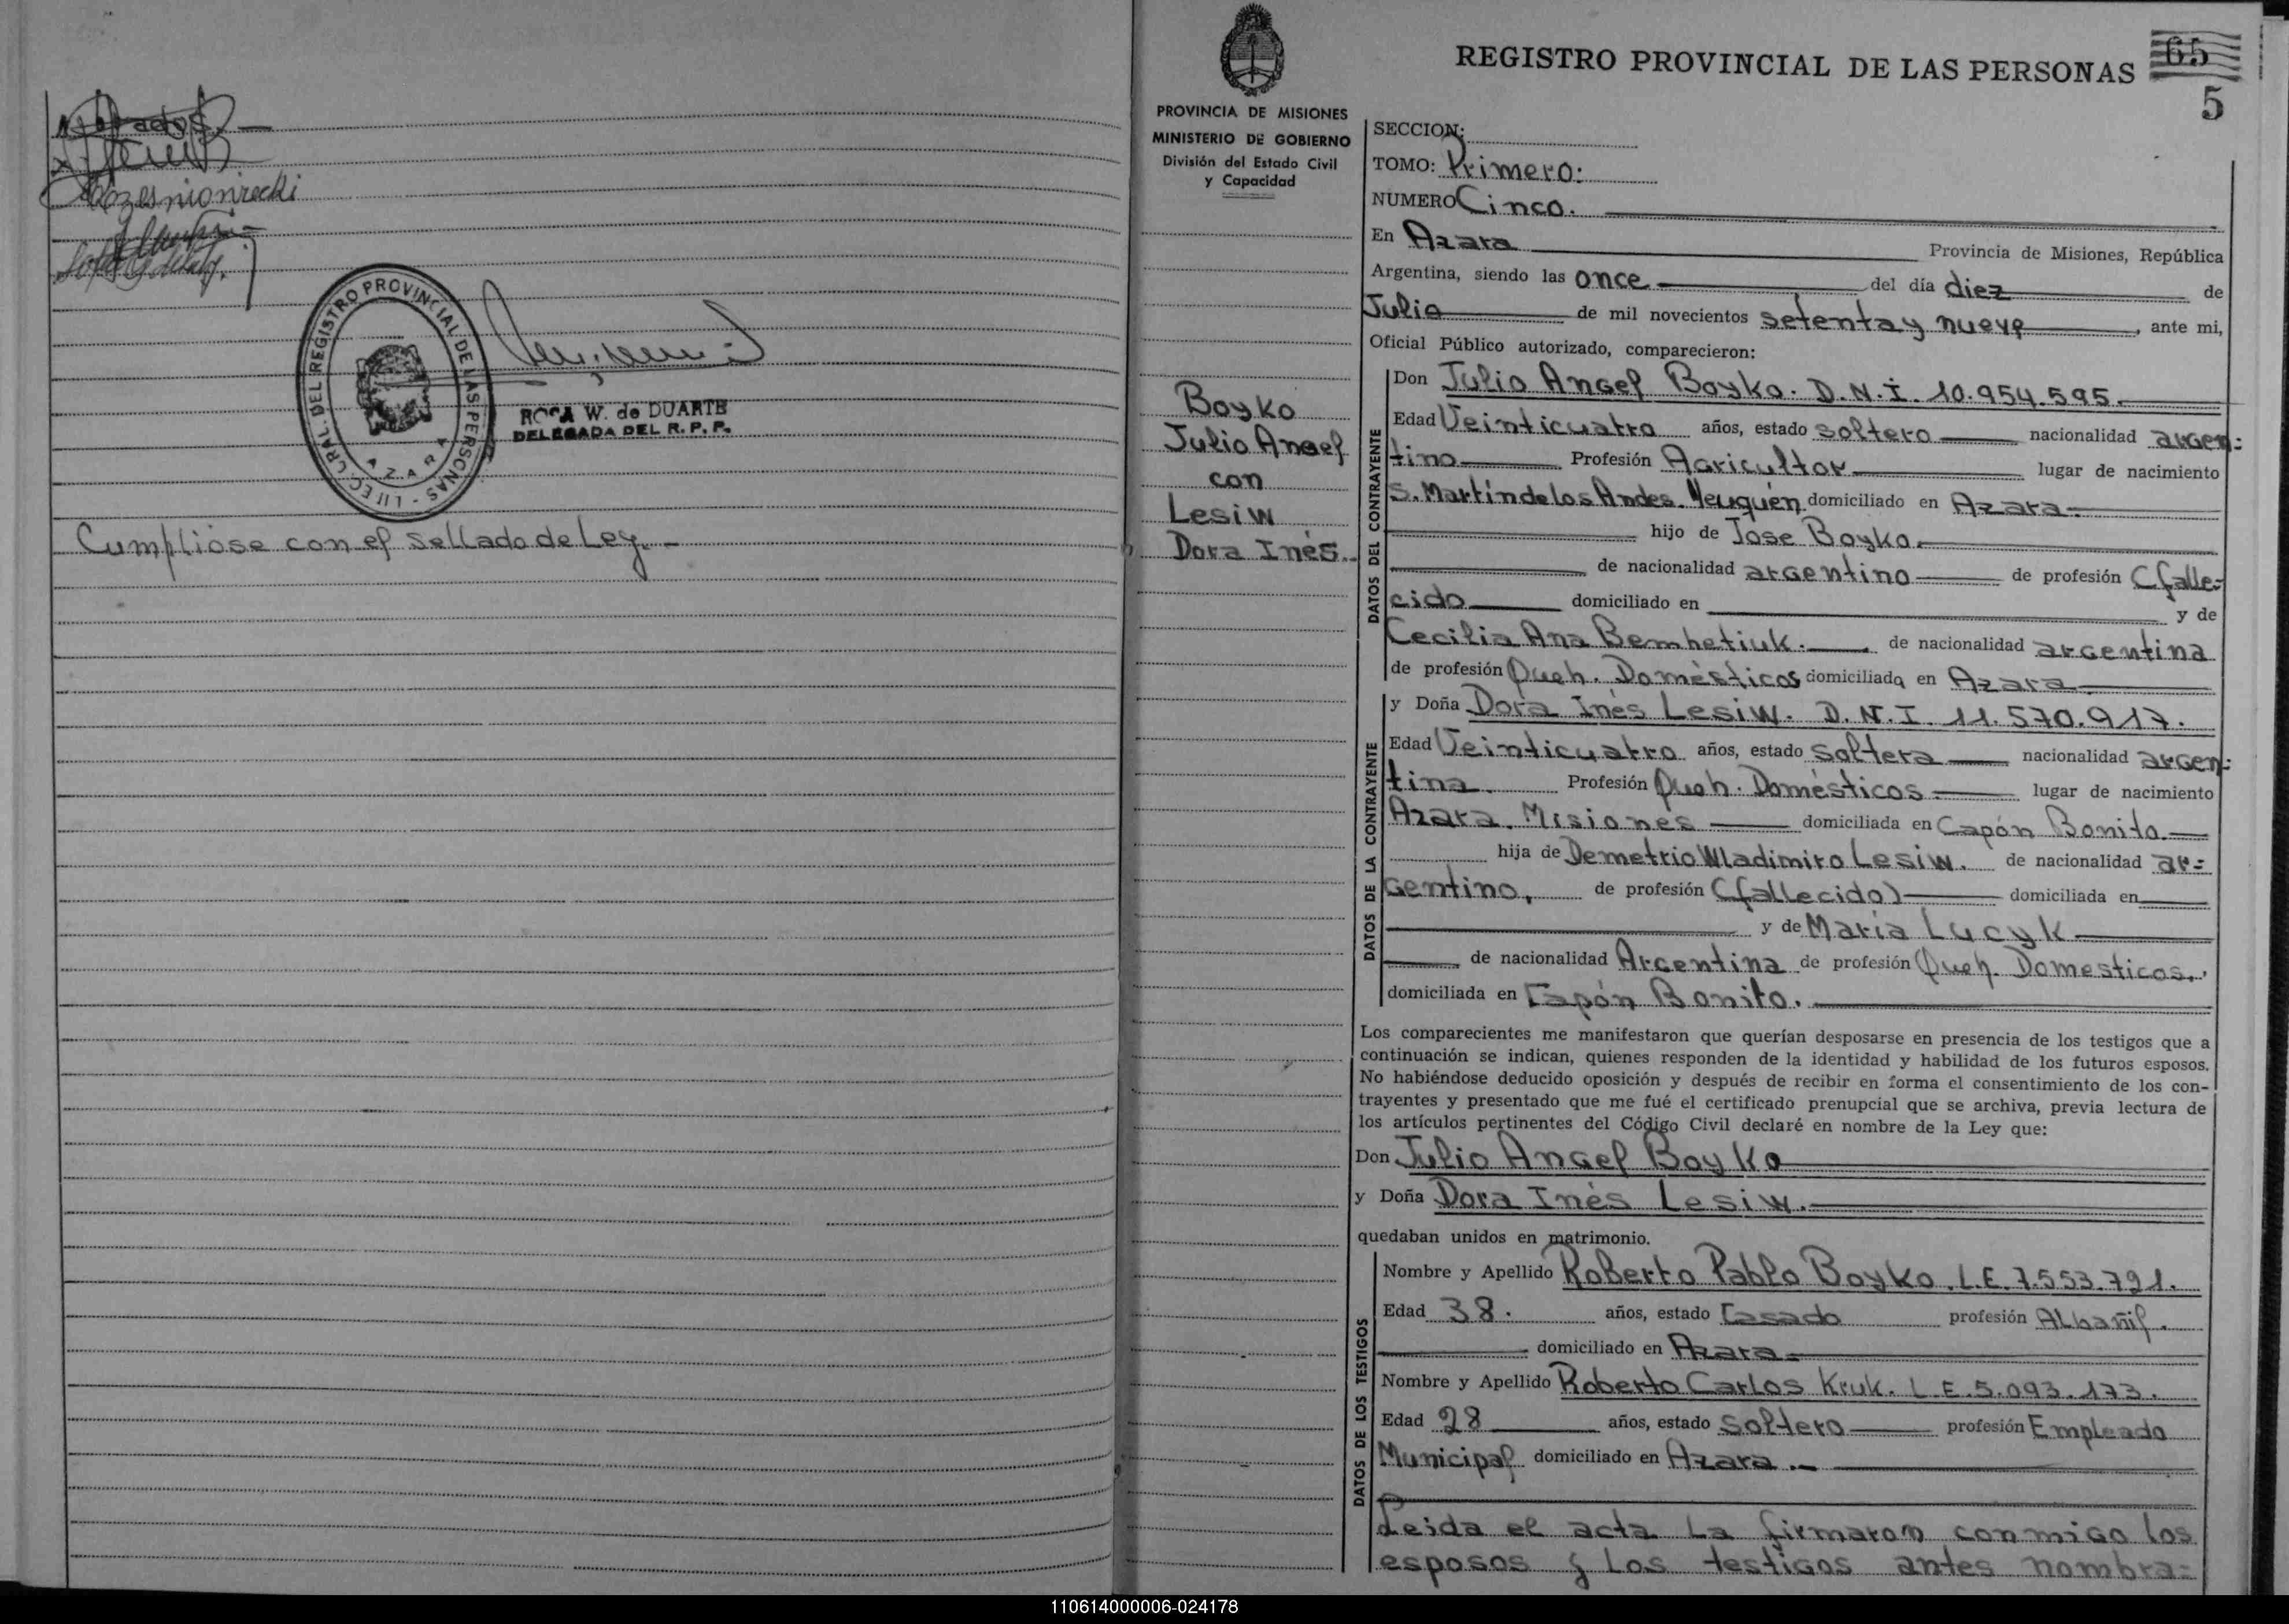 Cumplióse con el sellado de Ley. -
DEL REGISTRO PROVINCIAL DE LAS PERSONAS
AZARA
ROSA W. de DUARTE
DELEGADA DEL R. P. P.
PROVINCIA DE MISIONES
MINISTERIO DE GOBIERNO
División del Estado Civil
y Capacidad
Boyko
Julio Angel
con
Lesiw
Dora Inés.
REGISTRO PROVINCIAL DE LAS PERSONAS
65
5
SECCION:
TOMO: Primero:
NUMERO Cinco.
En Azara Provincia de Misiones, República
Argentina, siendo las once del día diez de
Julio de mil novecientos setenta y nueve, ante mi,
Oficial Público autorizado, comparecieron:
DATOS DEL CONTRAYENTE
Don Julio Angel Boyko. D.N.I. 10.954.595.
Edad Veinticuatro años, estado soltero nacionalidad argen=
tino Profesión Agricultor lugar de nacimiento
S. Martín de los Andes. Neuquén domiciliado en Azara.
hijo de Jose Boyko.
de nacionalidad argentino de profesión (falle=
cido domiciliado en y de
Cecilia Ana Bemhetiuk. de nacionalidad argentina
de profesión Queh. Domésticos domiciliada en Azara
DATOS DE LA CONTRAYENTE
y Doña Dora Inés Lesiw. D.N.I. 11.570.917.
Edad Veinticuatro años, estado soltera nacionalidad argen=
tina. Profesión Queh. Domésticos lugar de nacimiento
Azara. Misiones domiciliada en Capón Bonito.
hija de Demetrio Wladimiro Lesiw. de nacionalidad ar=
gentino, de profesión (fallecido) domiciliada en
y de María Lucyk
de nacionalidad Argentina de profesión Queh. Domesticos.
domiciliada en Capón Bonito.
Los comparecientes me manifestaron que querían desposarse en presencia de los testigos que a
continuación se indican, quienes responden de la identidad y habilidad de los futuros esposos.
No habiéndose deducido oposición y después de recibir en forma el consentimiento de los con-
trayentes y presentado que me fué el certificado prenupcial que se archiva, previa lectura de
los artículos pertinentes del Código Civil declaré en nombre de la Ley que:
Don Julio Angel Boyko
y Doña Dora Inés Lesiw.
quedaban unidos en matrimonio.
DATOS DE LOS TESTIGOS
Nombre y Apellido Roberto Pablo Boyko. L.E. 7.553.791.
Edad 38. años, estado Casado profesión Albañil.
domiciliado en Azara
Nombre y Apellido Roberto Carlos Kruk. L.E. 5.093.173.
Edad 28 años, estado soltero profesión Empleado
Municipal domiciliado en Azara.
Leida el acta la firmaron conmigo los
esposos y los testigos antes nombra=
110614000006-024178